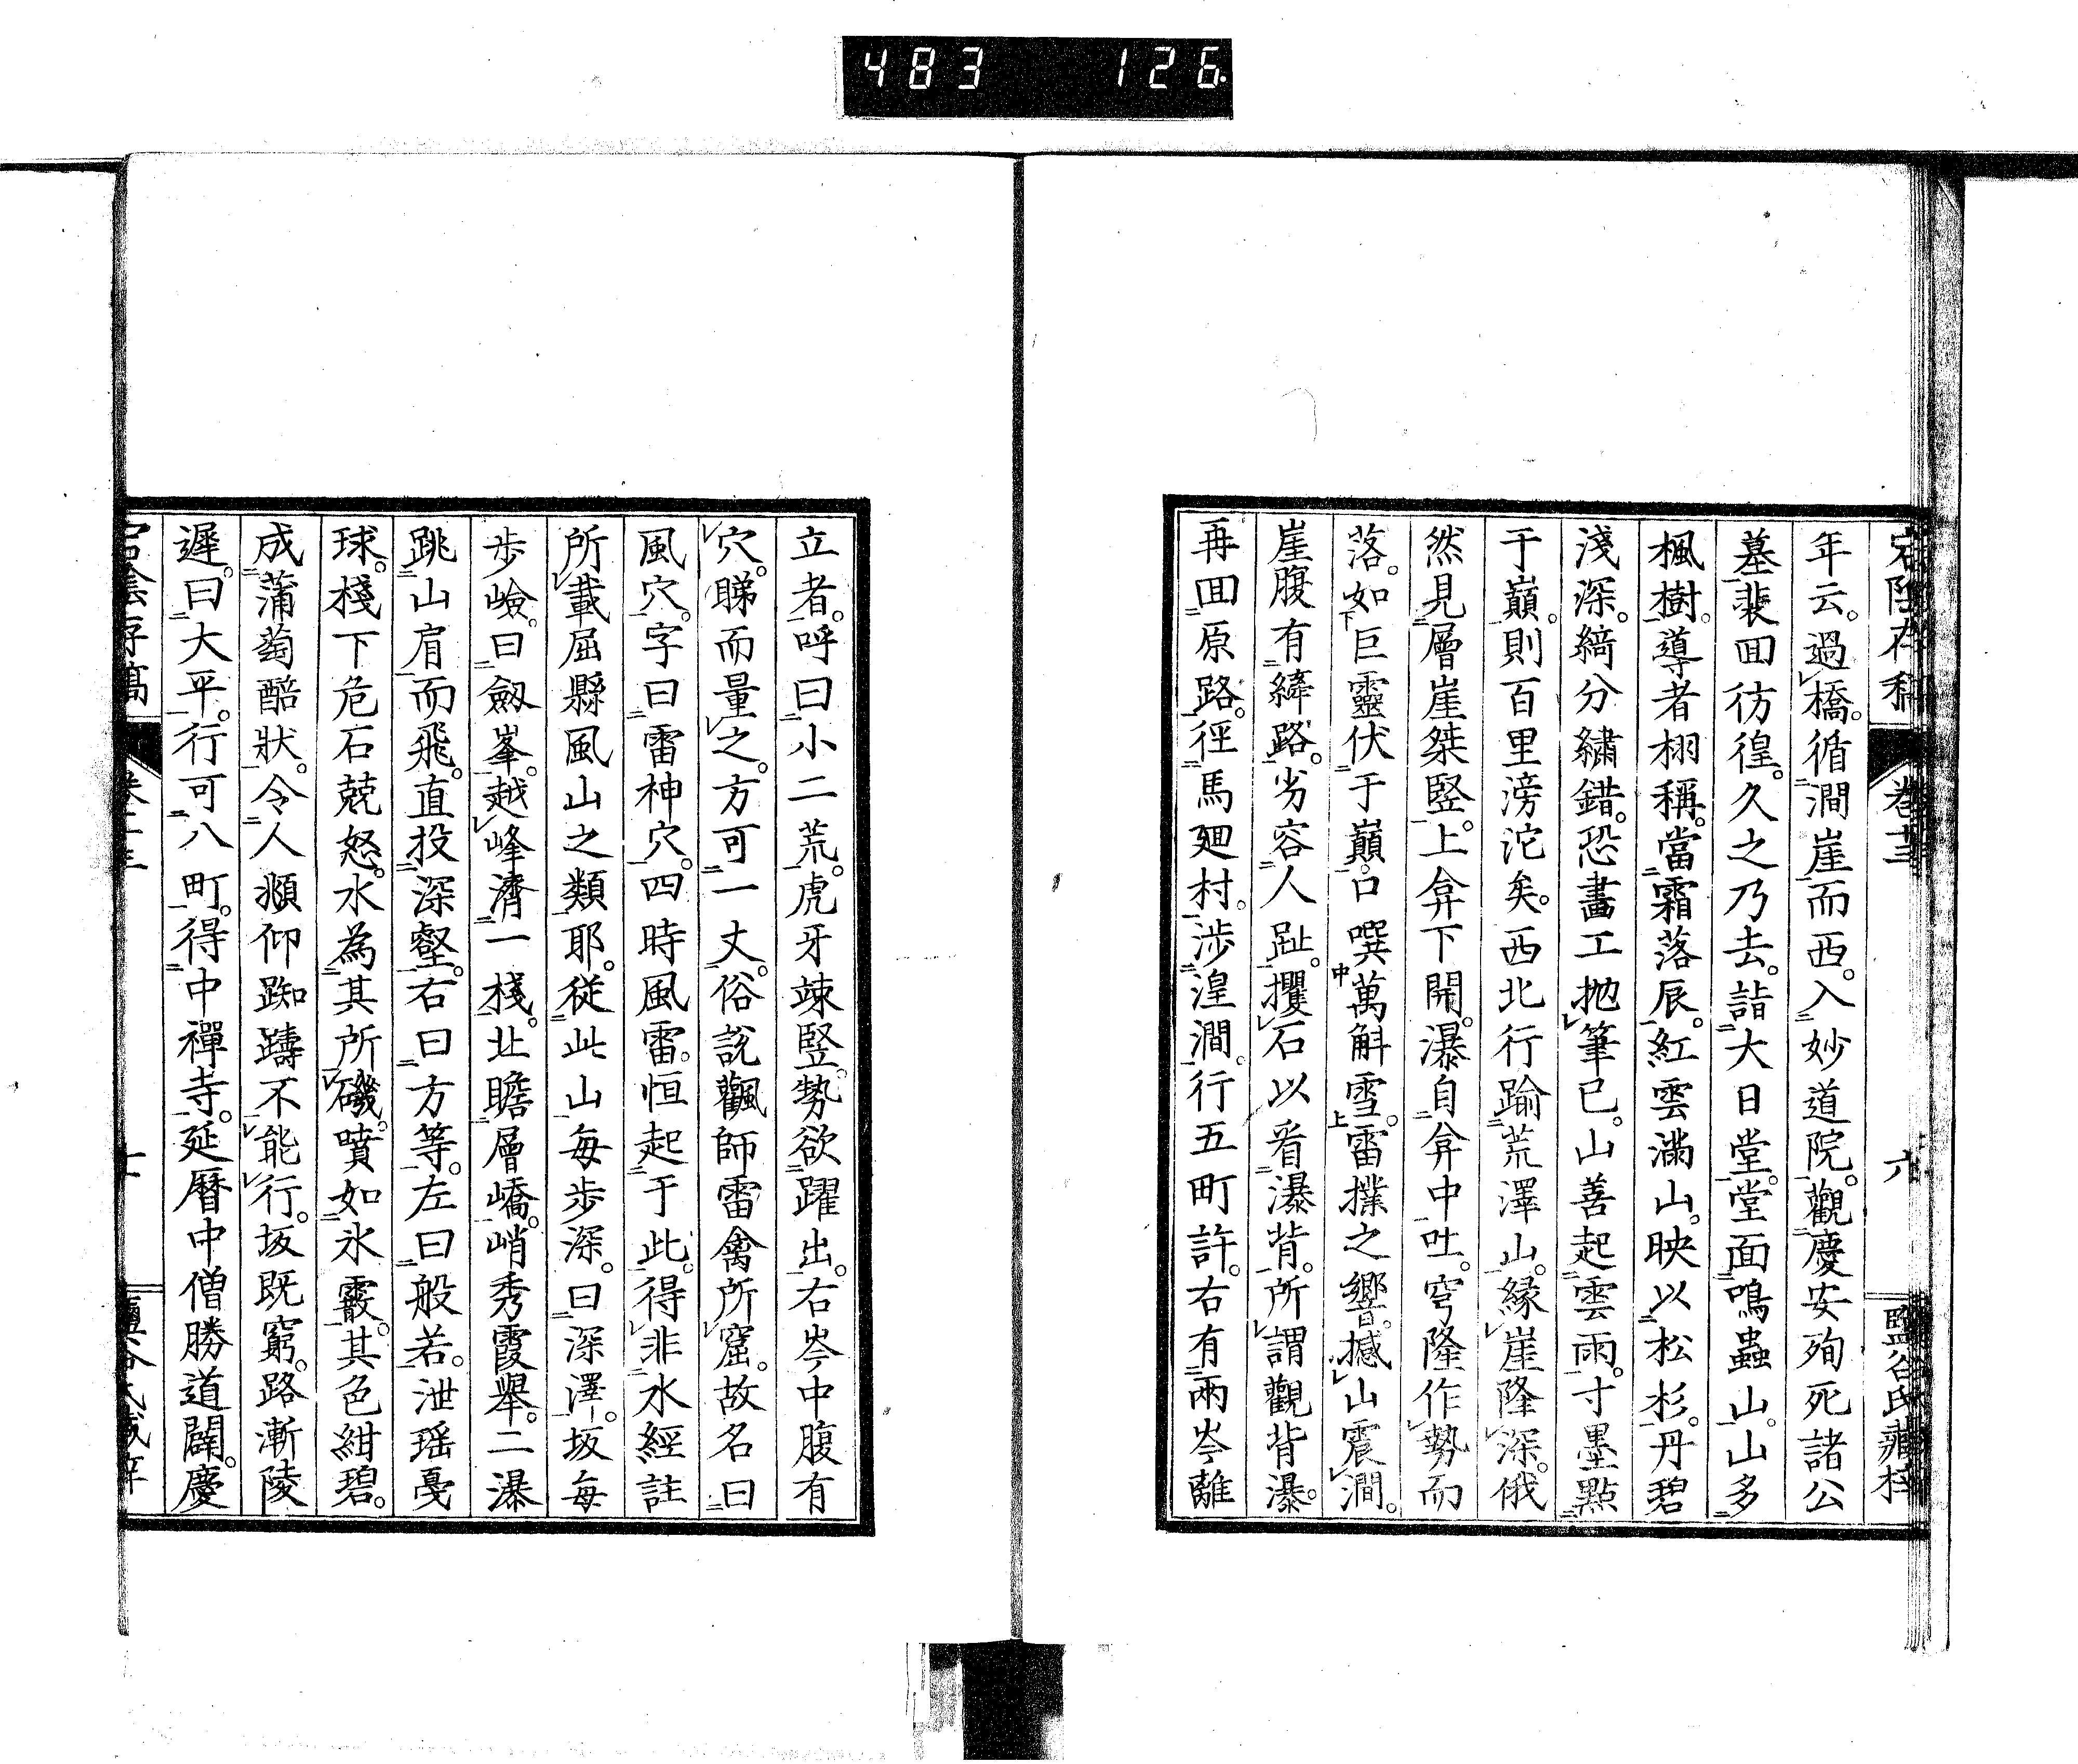 483 126
宕陰存稿 卷十三 六 鹽谷氏藏梓
年云。過橋。循澗崖而西。入妙道院。觀慶安殉死諸公
墓。裴回彷徨。久之乃去。詣大日堂。堂面鳴蟲山。山多
楓樹。導者栩稱。當霜落辰。紅雲滿山。映以松杉。丹碧
淺深。綺分繡錯。恐畫工抛筆已。山善起雲雨。寸墨點
于巔。則百里滂沱矣。西北行踰荒澤山。緣崖隆深。俄
然見層崖桀竪。上弇下開。瀑自弇中吐。穹隆作勢而
落。如巨靈伏于巔。口噀萬斛雪。雷撲之響。撼山震澗。
崖腹有縴路。劣容人趾。攫石以看瀑背。所謂觀背瀑。
再回原路。徑馬廻村。涉湟澗。行五町許。右有兩岑離
立者。呼曰小二荒。虎牙竦竪。勢欲躍出。右岑中腹有
穴。睇而量之。方可一丈。俗說飌師雷禽所窟。故名曰
風穴。字曰雷神穴。四時風雷。恒起于此。得非水經註
所載屈縣風山之類耶。從此山每步深。曰深澤。坂每
步嶮。曰劔峯。越峰濟一棧。北瞻層嶠。峭秀霞舉。二瀑
跳山肩而飛。直投深壑。右曰方等。左曰般若。泄瑶戞
球。棧下危石兢怒。水為其所磯。噴如氷霰。其色紺碧。
成蒲萄醅狀。令人頫仰踟躊不能行。坂既窮。路漸陵
遲。曰大平。行可八町。得中禪寺。延曆中僧勝道闢。慶
宕陰存稿 卷十三 七 鹽谷氏藏梓